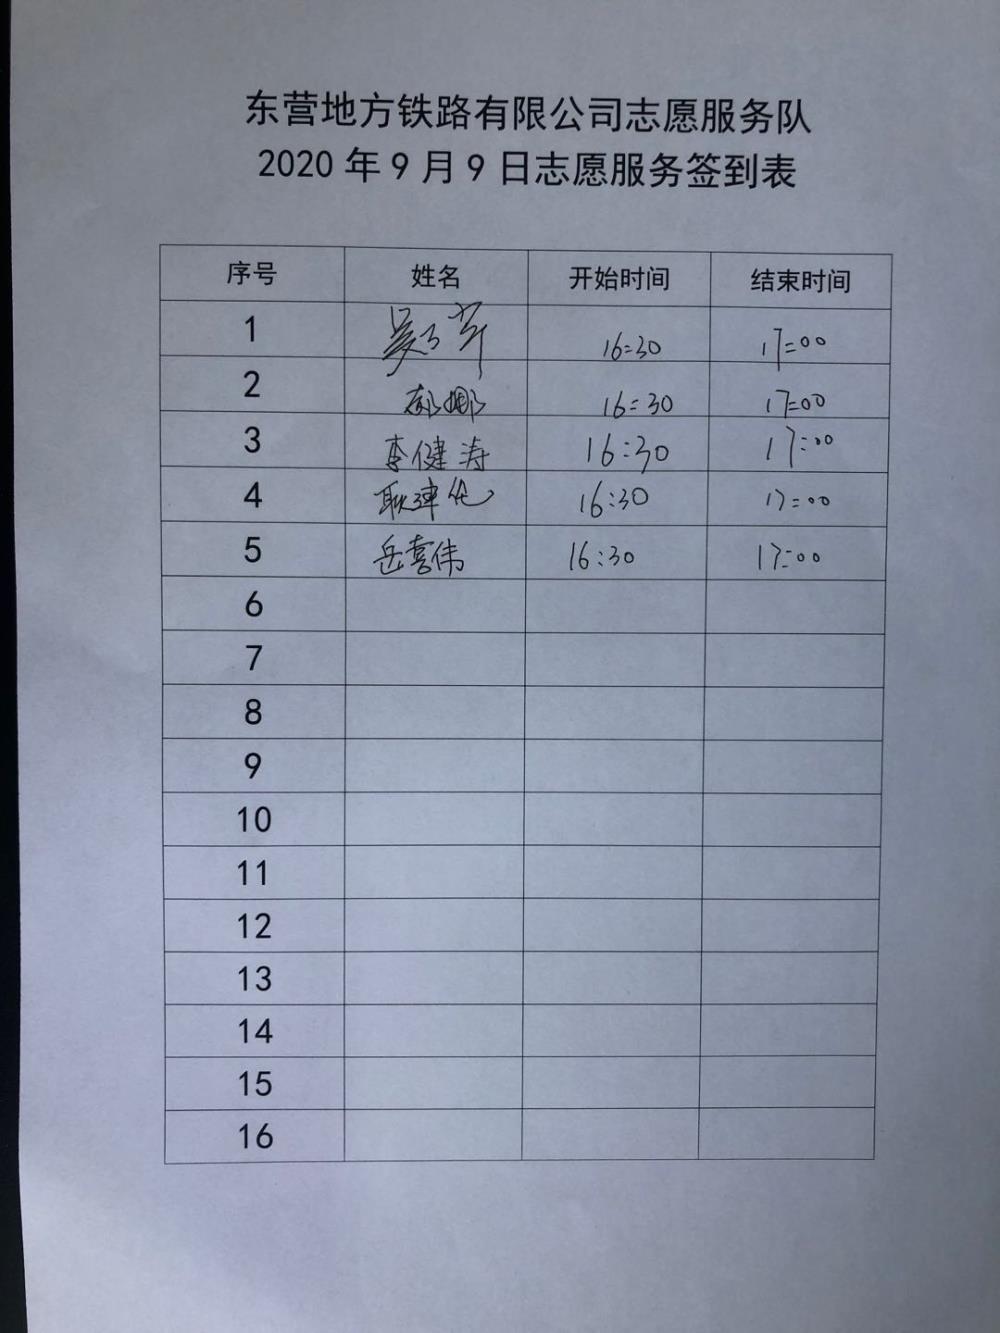 东营地方铁路有限公司志愿服务队
2020年9月9日志愿服务签到表
序号 姓名 开始时间 结束时间
1 16:30 17:00
2 16:30 17:00
3 李健涛 16:30 17:00
4 耿建华 16:30 17:00
5 岳喜伟 16:30 17:00
6
7
8
9
10
11
12
13
14
15
16